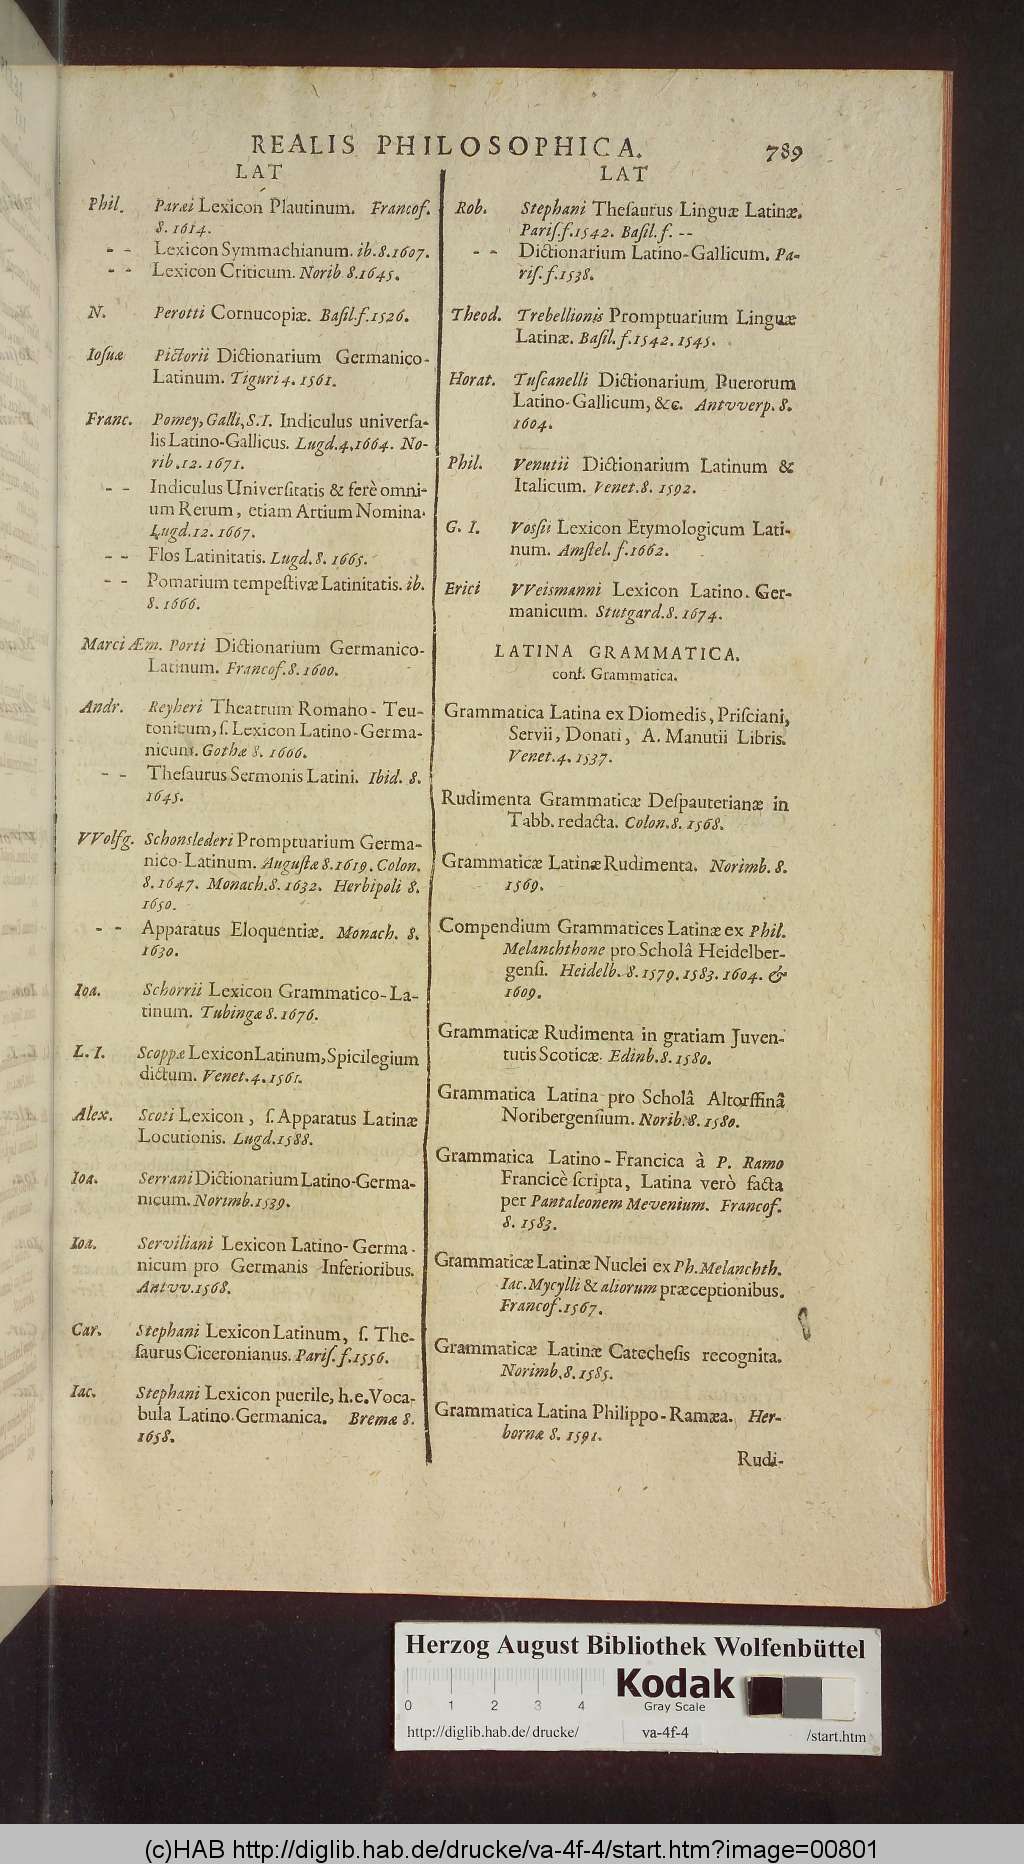 REALIS PHILOSOPHICA. 789
LAT
Phil. Paræi Lexicon Plautinum. Francof.
8. 1614.
- - Lexicon Symmachianum. ib. 8. 1607.
- - Lexicon Criticum. Norib 8. 1645.
N. Perotti Cornucopiæ. Basil. f. 1526.
Iosuæ Pictorii Dictionarium Germanico-
Latinum. Tiguri 4. 1561.
Franc. Pomey, Galli, S. I. Indiculus universa-
lis Latino-Gallicus. Lugd. 4. 1664. No-
rib. 12. 1671.
- - Indiculus Universitatis & ferè omni-
um Rerum, etiam Artium Nomina.
Lugd. 12. 1667.
- - Flos Latinitatis. Lugd. 8. 1665.
- - Pomarium tempestivæ Latinitatis. ib.
8. 1666.
Marci Æm. Porti Dictionarium Germanico-
Latinum. Francof. 8. 1600.
Andr. Reyheri Theatrum Romano-Teu-
tonicum, ſ. Lexicon Latino-Germa-
nicum. Gothæ 8. 1666.
- - Thesaurus Sermonis Latini. Ibid. 8.
1645.
VVolfg. Schonslederi Promptuarium Germa-
nico-Latinum. Augustæ 8. 1619. Colon.
8. 1647. Monach. 8. 1632. Herbipoli 8.
1650.
- - Apparatus Eloquentiæ. Monach. 8.
1630.
Ioa. Schorrii Lexicon Grammatico-La-
tinum. Tubingæ 8. 1676.
L. I. Scoppæ Lexicon Latinum, Spicilegium
dictum. Venet. 4. 1561.
Alex. Scoti Lexicon, ſ. Apparatus Latinæ
Locutionis. Lugd. 1588.
Ioa. Serrani Dictionarium Latino-Germa-
nicum. Norimb. 1539.
Ioa. Serviliani Lexicon Latino-Germa-
nicum pro Germanis Inferioribus.
Antvv. 1568.
Car. Stephani Lexicon Latinum, ſ. The-
saurus Ciceronianus. Paris. f. 1556.
Iac. Stephani Lexicon puerile, h. e. Voca-
bula Latino-Germanica. Bremæ 8.
1658.
LAT
Rob. Stephani Thesaurus Linguæ Latinæ.
Paris. f. 1542. Basil. f. --
- - Dictionarium Latino-Gallicum. Pa-
ris. f. 1538.
Theod. Trebellionis Promptuarium Linguæ
Latinæ. Basil. f. 1542. 1545.
Horat. Tuscanelli Dictionarium Puerorum
Latino-Gallicum, &c. Antvverp. 8.
1604.
Phil. Venutii Dictionarium Latinum &
Italicum. Venet. 8. 1592.
G. I. Vossii Lexicon Etymologicum Lati-
num. Amstel. f. 1662.
Erici VVeismanni Lexicon Latino-Ger-
manicum. Stutgard. 8. 1674.
LATINA GRAMMATICA.
conf. Grammatica.
Grammatica Latina ex Diomedis, Prisciani,
Servii, Donati, A. Manutii Libris.
Venet. 4. 1537.
Rudimenta Grammaticæ Despauterianæ in
Tabb. redacta. Colon. 8. 1568.
Grammaticæ Latinæ Rudimenta. Norimb. 8.
1569.
Compendium Grammatices Latinæ ex Phil.
Melanchthone pro Scholâ Heidelber-
gensi. Heidelb. 8. 1579. 1583. 1604. &
1609.
Grammaticæ Rudimenta in gratiam Juven-
tutis Scoticæ. Edinb. 8. 1580.
Grammatica Latina pro Scholâ Altorffinâ
Noribergensium. Norib. 8. 1580.
Grammatica Latino-Francica à P. Ramo
Francicè scripta, Latina verò facta
per Pantaleonem Mevenium. Francof.
8. 1583.
Grammaticæ Latinæ Nuclei ex Ph. Melanchth.
Iac. Mycylli & aliorum præceptionibus.
Francof. 1567.
Grammaticæ Latinæ Catechesis recognita.
Norimb. 8. 1585.
Grammatica Latina Philippo-Ramæa. Her-
bornæ 8. 1591.
Rudi-
Herzog August Bibliothek Wolfenbüttel
0 1 2 3 4
Kodak
Gray Scale
http://diglib.hab.de/drucke/ va-4f-4 /start.htm
(c)HAB http://diglib.hab.de/drucke/va-4f-4/start.htm?image=00801